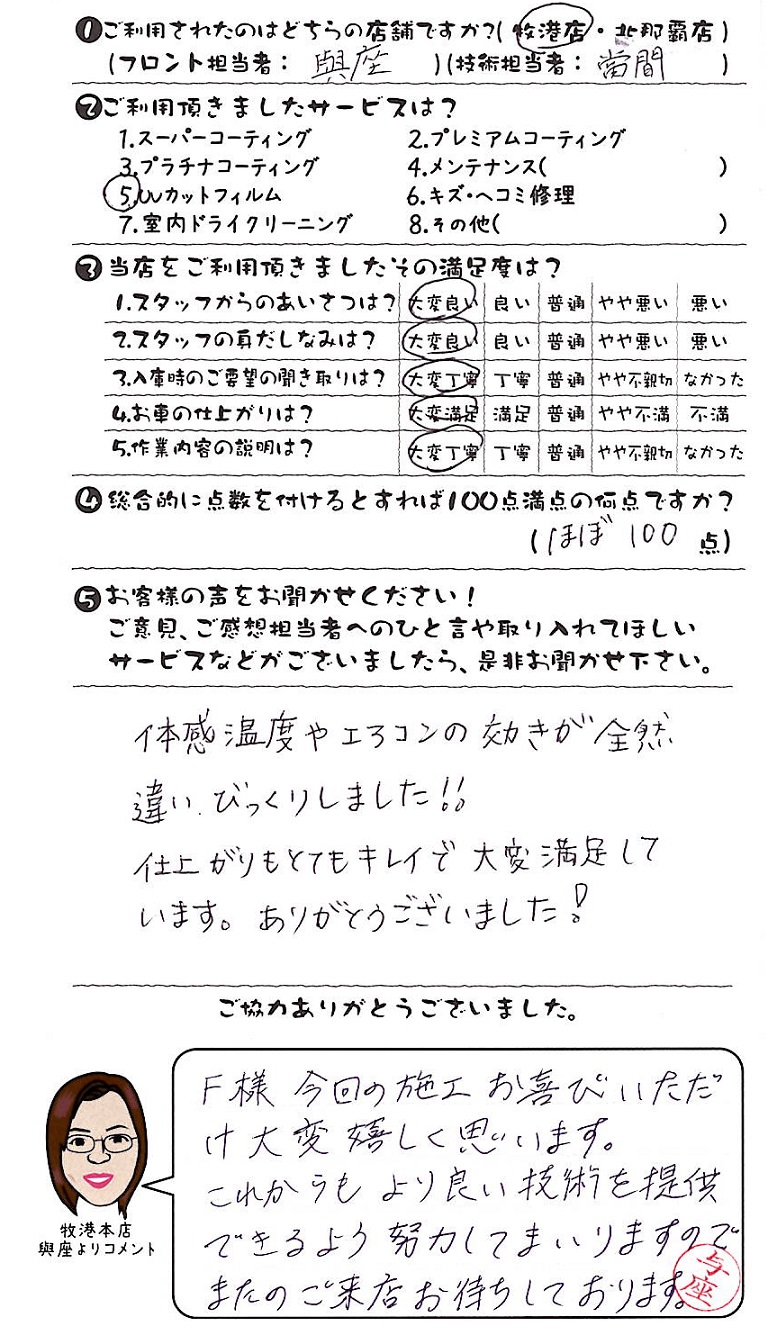 ❶ご利用されたのはどちらの店舗ですか?(牧港店・北那覇店)
(フロント担当者: 與座 )(技術担当者: 當間 )
❷ご利用頂きましたサービスは?
1.スーパーコーティング 2.プレミアムコーティング
3.プラチナコーティング 4.メンテナンス( )
5.UVカットフィルム 6.キズ・ヘコミ修理
7.室内ドライクリーニング 8.その他( )
❸当店をご利用頂きましたその満足度は?
1.スタッフからのあいさつは? 大変良い 良い 普通 やや悪い 悪い
2.スタッフの身だしなみは? 大変良い 良い 普通 やや悪い 悪い
3.入庫時のご要望の聞き取りは? 大変丁寧 丁寧 普通 やや不親切 なかった
4.お車の仕上がりは? 大変満足 満足 普通 やや不満 不満
5.作業内容の説明は? 大変丁寧 丁寧 普通 やや不親切 なかった
❹総合的に点数を付けるとすれば100点満点の何点ですか?
(ほぼ 100 点)
❺お客様の声をお聞かせください!
ご意見、ご感想担当者へのひと言や取り入れてほしい
サービスなどがございましたら、是非お聞かせ下さい。
体感温度やエアコンの効きが全然
違い、びっくりしました!!
仕上がりもとてもキレイで大変満足して
います。ありがとうございました!
ご協力ありがとうございました。
F様 今回の施工 お喜びいただ
け大変嬉しく思います。
これからも より良い技術を提供
できるよう 努力してまいりますので
またのご来店お待ちしております。
与座
牧港本店
與座よりコメント